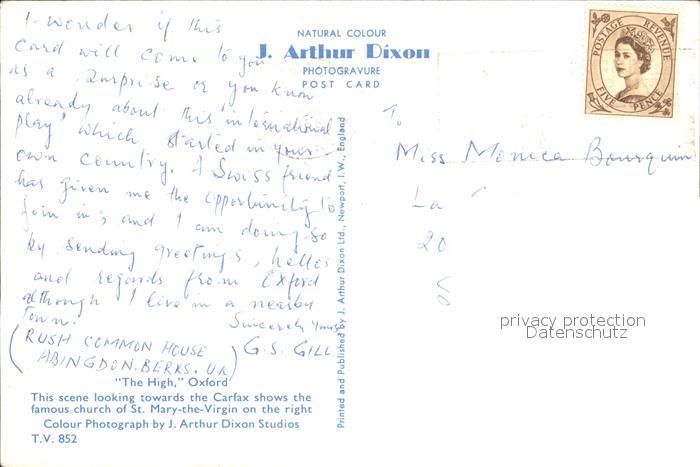 I wonder if this
card will come to you
as a surprise or you know
already about this 'international
play' which started in your
own country. A Swiss friend
has given me the opportunity to
join in; and I am doing so
by sending greetings, hellos
and regards from Oxford
although I live in a nearby
town.
Sincerely Yours
G.S. GILL
(RUSH COMMON HOUSE
ABINGDON. BERKS. UK)
"The High," Oxford
This scene looking towards the Carfax shows the
famous church of St. Mary-the-Virgin on the right
Colour Photograph by J. Arthur Dixon Studios
T.V. 852
NATURAL COLOUR
J. Arthur Dixon
PHOTOGRAVURE
POST CARD
Printed and Published by J. Arthur Dixon Ltd., Newport, I.W., England
POSTAGE REVENUE
FIVE PENCE
To
Miss Monica Bourquin
La
20
privacy protection
Datenschutz